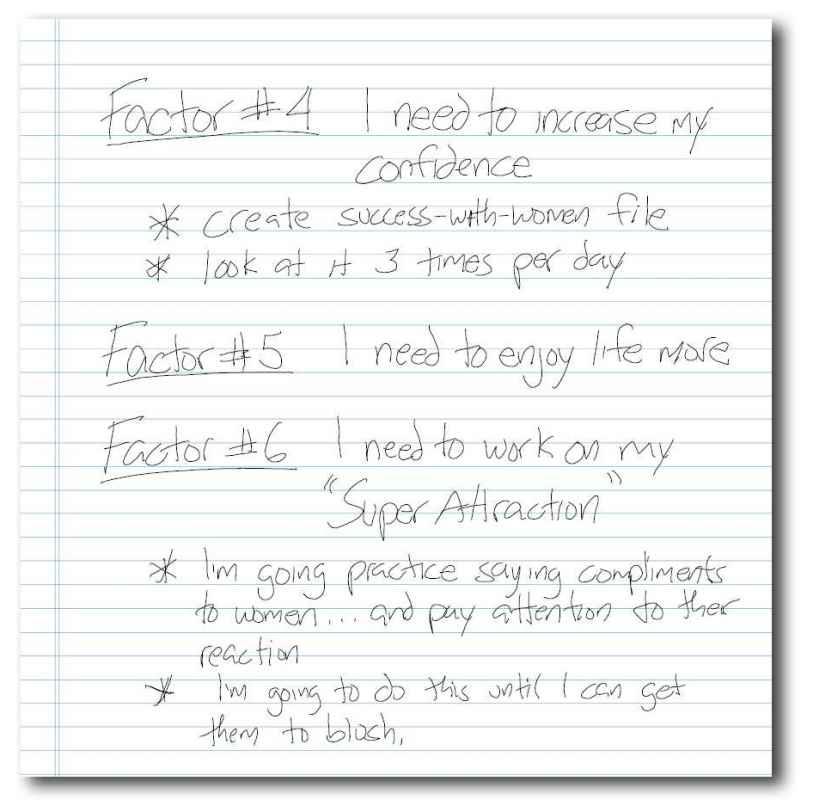 Factor #4 I need to increase my
confidence
* create success-with-women file
* look at it 3 times per day
Factor #5 I need to enjoy life more
Factor #6 I need to work on my
"Super Attraction"
* I'm going practice saying compliments
to women... and pay attention to ther
reaction
* I'm going to do this until I can get
them to blush.